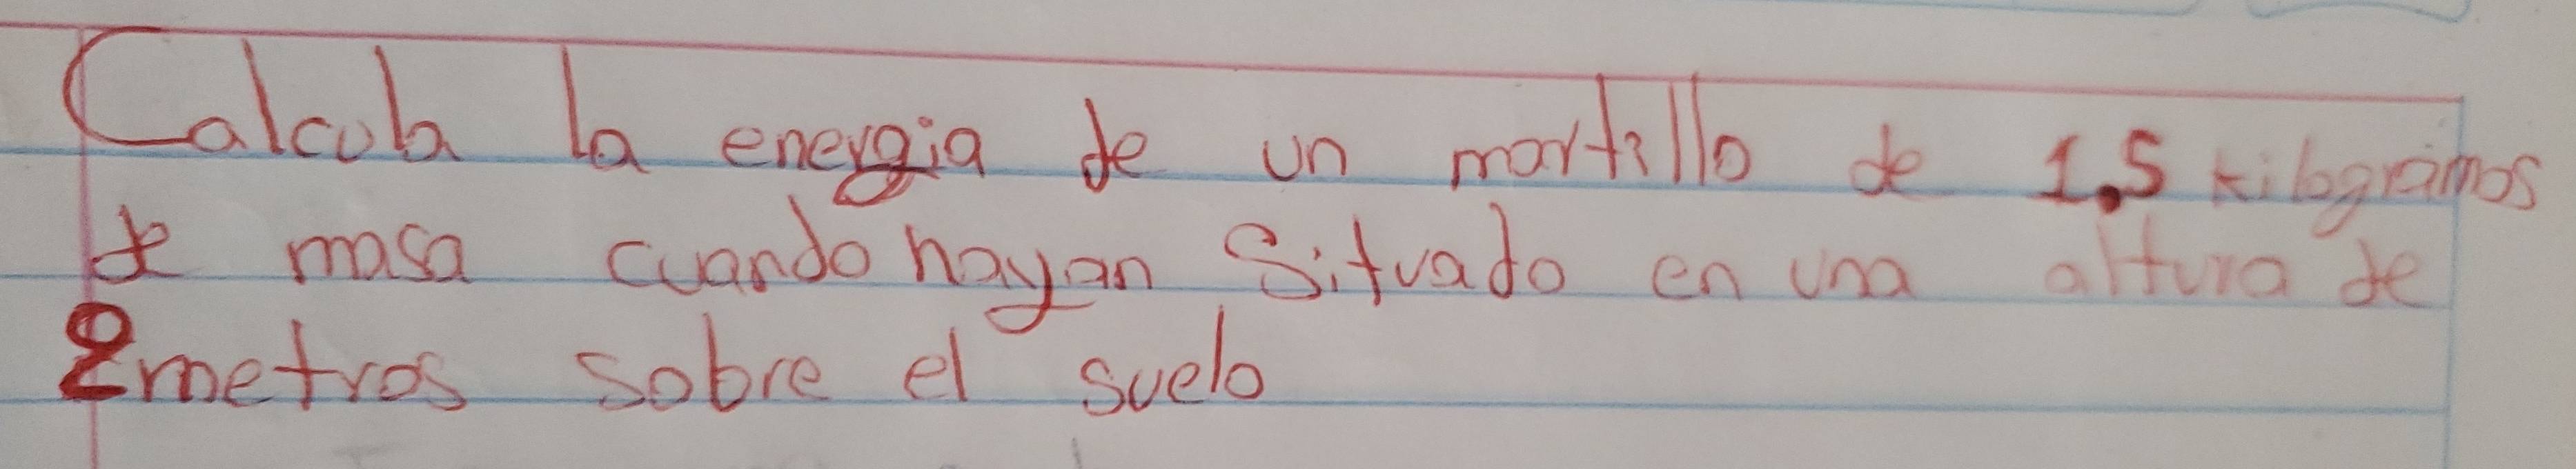 Calcula la energia de un martillo de 1.5 kilogramos
de masa cuando hayan Situado en una altura de
2metros sobre el suelo